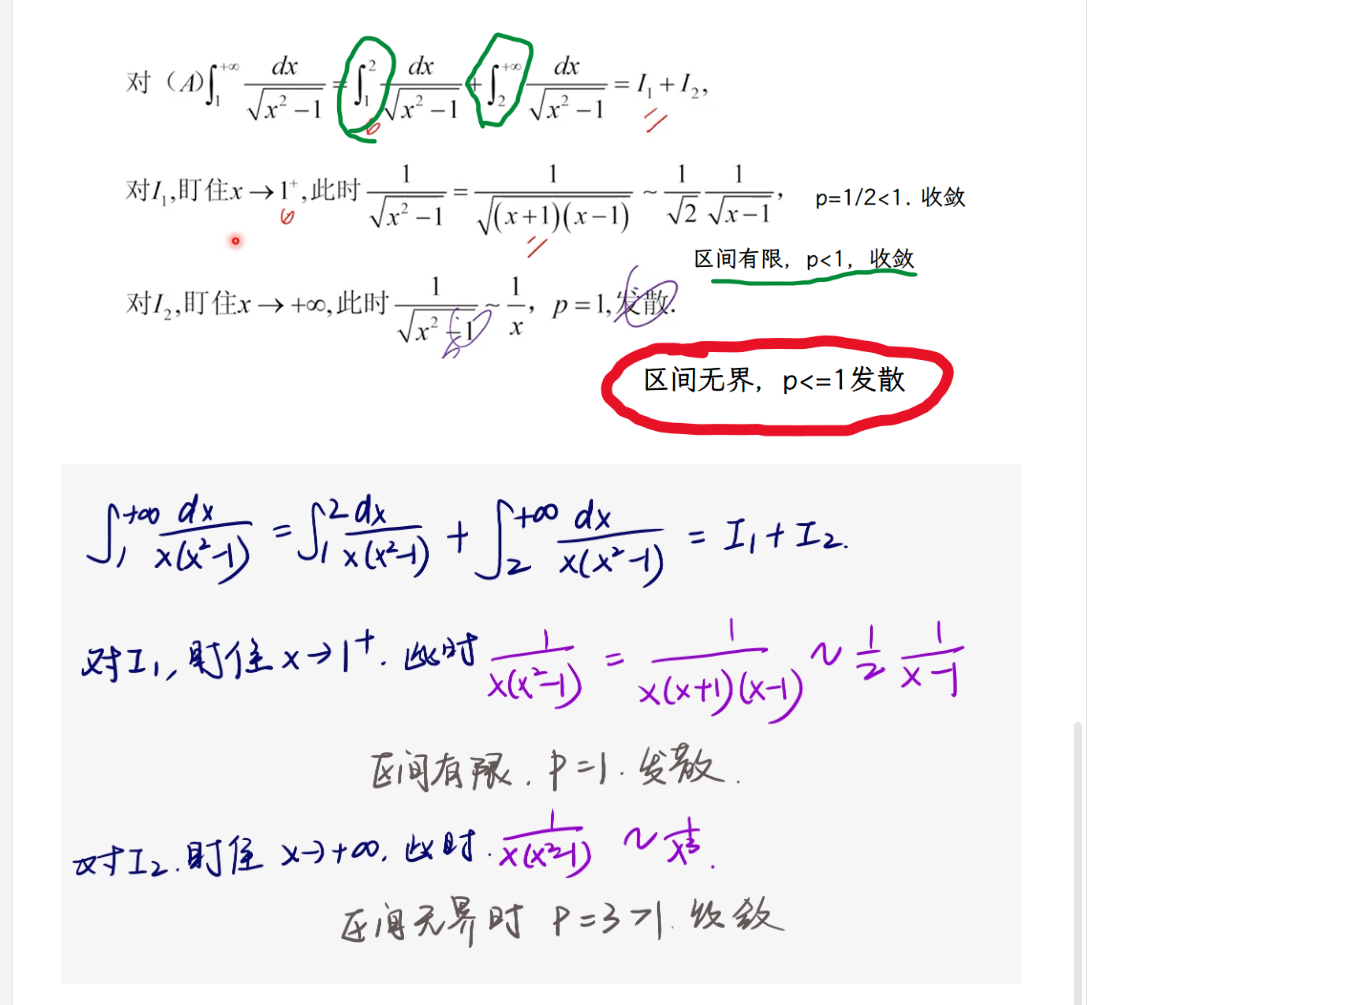 对（A）∫₁^{+∞} dx/√(x²−1) = ∫₁² dx/√(x²−1) + ∫₂^{+∞} dx/√(x²−1) = I₁ + I₂,
对I₁,盯住x→1⁺,此时 1/√(x²−1) = 1/√((x+1)(x−1)) ~ 1/√2 1/√(x−1), p=1/2<1. 收敛
区间有限，p<1，收敛
对I₂,盯住x→+∞,此时 1/√(x²−1) ~ 1/x, p=1,发散.
区间无界，p<=1发散
∫₁^{+∞} dx/x(x²−1) = ∫₁² dx/x(x²−1) + ∫₂^{+∞} dx/x(x²−1) = I₁+I₂.
对I₁,盯住x→1⁺.此时 1/x(x²−1) = 1/x(x+1)(x−1) ~ 1/2 1/x−1
区间有限.p=1.发散.
对I₂.盯住x→+∞.此时.1/x(x²−1) ~ 1/x³.
区间无界时 P=3>1.收敛